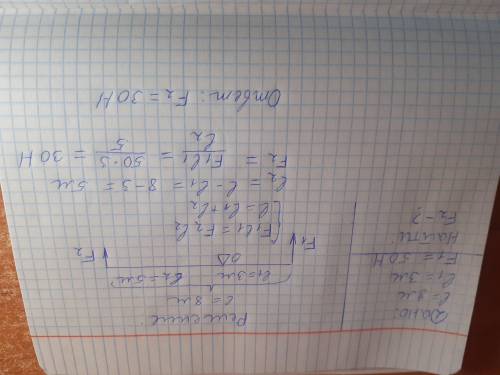 Дано:
l = 8м
l₁ = 3м
F₁ = 50 Н
Найти
F₂ - ?
Решение
l = 8м
l₁ = 3м l₂ = 5м
O
F₁ F₂
F₁l₁ = F₂l₂
l = l₁ + l₂
l₂ = l - l₁ = 8 - 3 = 5м
F₂ = F₁l₁ / l₂ = 50·3 / 5 = 30 Н
Ответ: F₂ = 30 Н